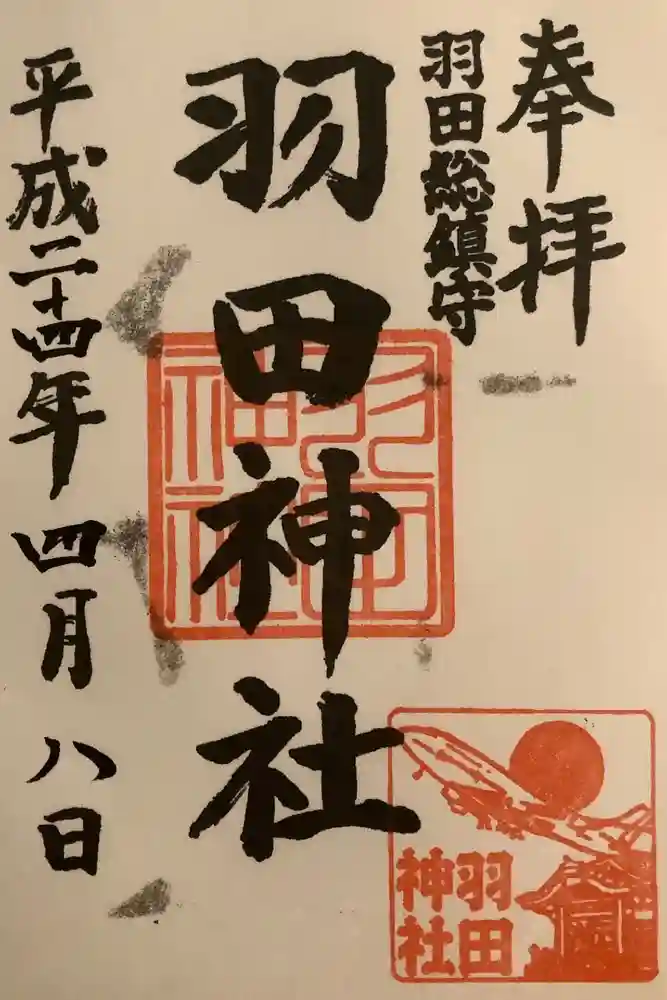 奉拝
羽田総鎮守
羽田神社
平成二十四年四月八日
羽田
神社
羽田
神社